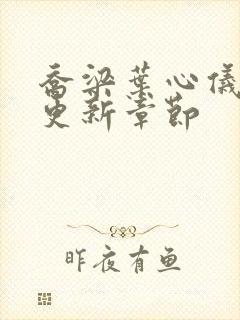 乔梁叶心仪
更新章节
昨夜有鱼